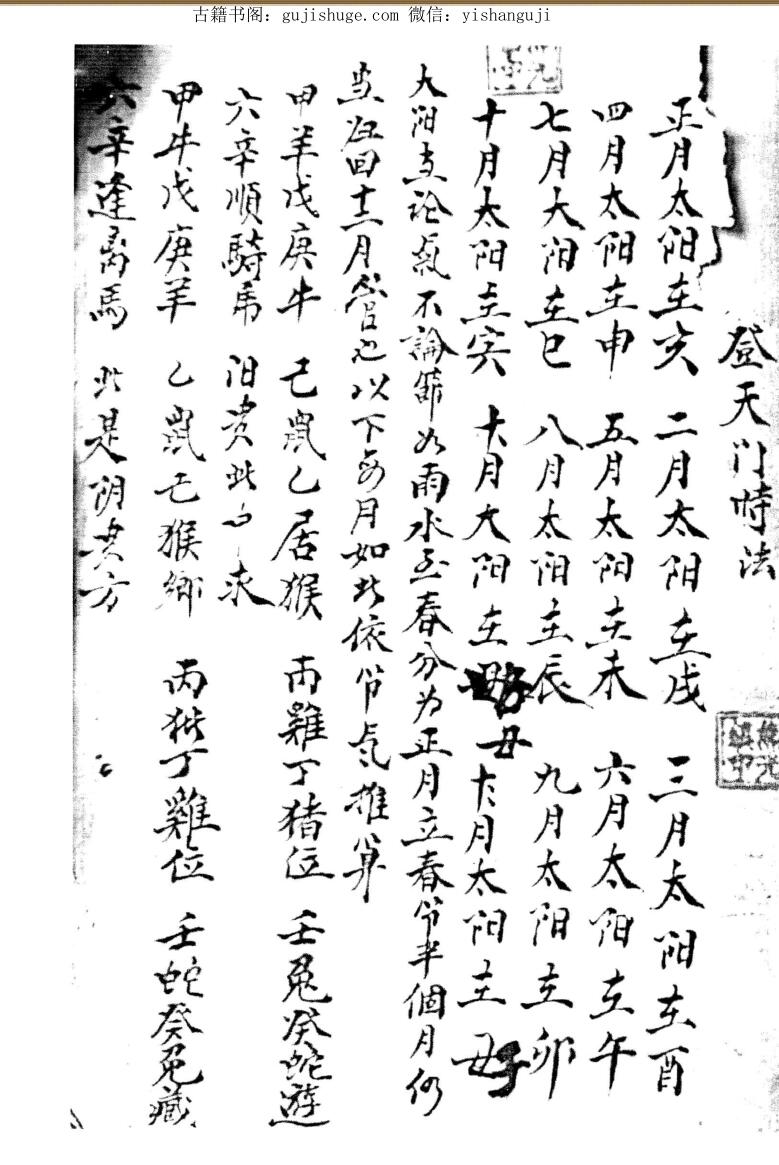 古籍书阁：gujishuge.com 微信：yishanguji
登天门時法
正月太阳在亥 二月太阳在戌 三月太阳在酉
四月太阳在申 五月太阳在未 六月太阳在午
七月太阳在巳 八月太阳在辰 九月太阳在卯
十月太阳在寅 十一月太阳在丑 十二月太阳在子
太阳支论氣不論節如雨水至春分为正月立春节半個月仍
当归回十二月管也以下每月如此依节气推算
甲羊戊庚牛 己鼠乙居猴 丙雞丁猪位 壬兔癸蛇遊
六辛順騎馬 阳贵此中求
甲牛戊庚羊 乙鼠己猴鄉 丙猪丁雞位 壬蛇癸兔藏
六辛逢离馬 此是阴贵方